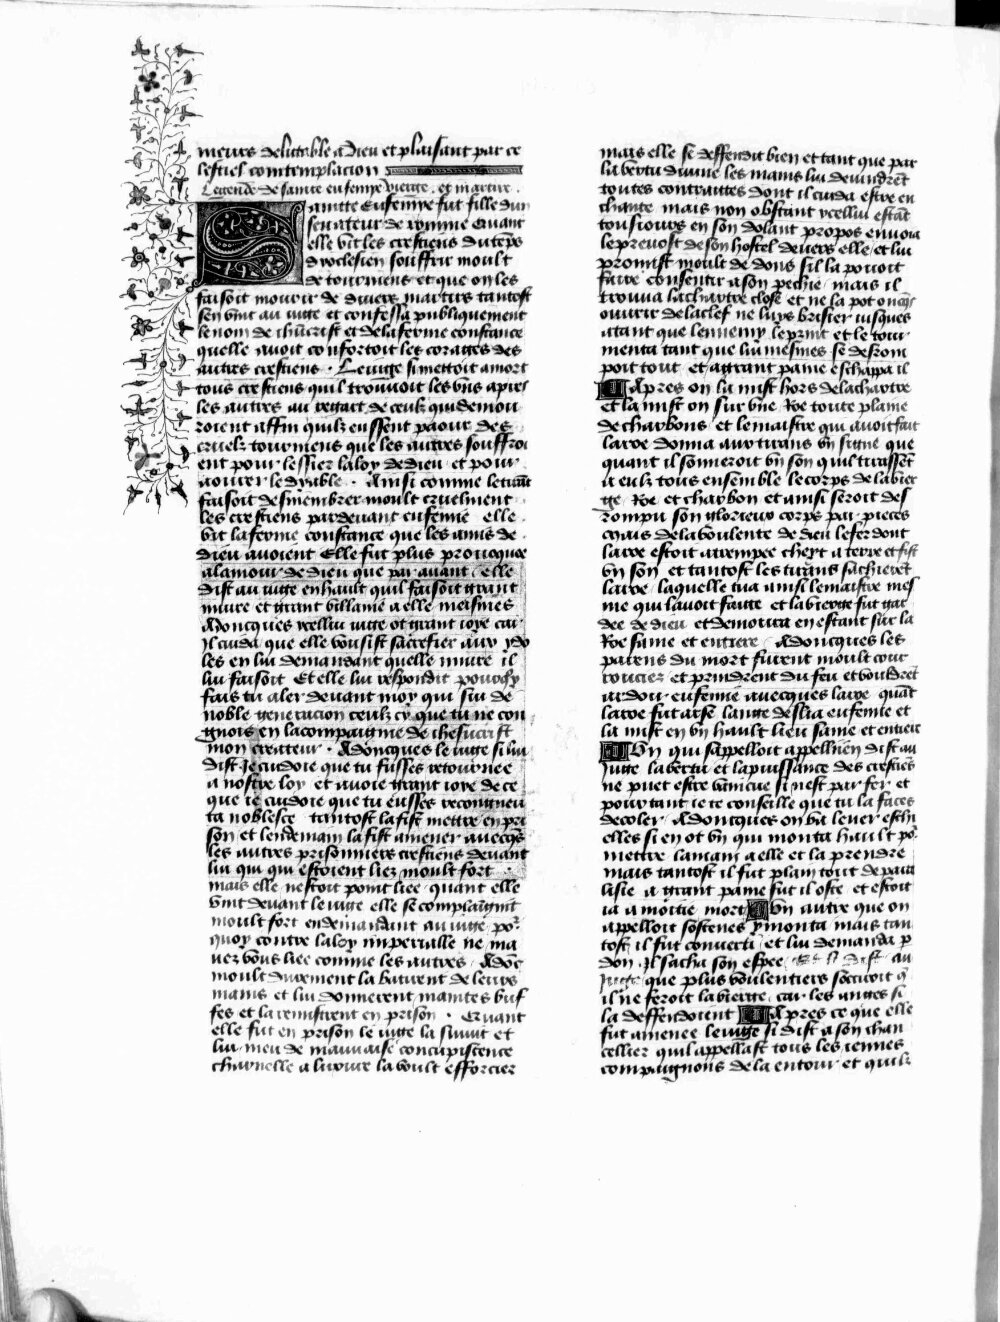 meurs delitable a Dieu et plaisant par ce
lestiel contemplacion
Legende de sainte eufemye vierge et martire
Saintte Eufemye fut fille dun
senateur de romme Quant
elle vit les crestiens du tẽps
dyoclesien souffrir moult
de tourmens et que on les
faisoit mourir de divers martirs tantost
sen vint au iuge et confessa publiquement
le nom de ihũcrist et de la ferme constance
quelle avoit confortoit les corages des
autres crestiens. Le iuge si mettoit a mort
tous crestiens quil trouvoit les vns apres
les autres au regart de ceulx qui demou
roient affin quilz eussent paour des
cruelz tourmens que les autres souffroi
ent pour lessier la loy de dieu et pour
aourer le dyable. Ainsi comme le iuge
faisoit desmembrer moult cruelment
les crestiens pardevant eufemie elle
vit la ferme constance que les amis de
dieu avoient Elle fut plus provoquee
a lamour de dieu que par avant elle
dist au iuge en hault quil faisoit grant
iniure et grant villanie a elle meismes
Adoncques ycellui iuge ot grant ioye car
il cuida que elle voulsist sacrefier aux ydo
les en lui demandant quelle iniure il
lui faisoit Et elle lui respondit pourquoy
fais tu aler devant moy qui sui de
noble generacion ceulz cy que tu ne con
gnois en la compaignie de ihesucrist
mon createur. Adoncques le iuge si lui
dist Je cuidoie que tu fusses retournee
a nostre loy et avoie grant ioye de ce
que ie cuidoie que tu eusses recongneu
ta noblesce tantost la fist mettre en pri
son et lendemain la fist amener avecq̃s
les autres prisonniers crestiens devant
lui qui qui estoient liez moult fort.
mais elle nestoit point liee quant elle
vint devant le iuge elle se complaignit
moult fort en demandant au iuge po᷑
quoy contre la loy imperialle ne ma
vez vous liee comme les autres. Adõc
moult durement la batirent de leurs
mains et lui donnerent maintes buf
fes et la remistrent en prison. Quant
elle fut en prison le iuge la suiuit et
lui meu de mauvaise concupiscence
charnelle a luxure la voult efforcier
mais elle se deffendit bien et tant que par
la vertu divine les mains lui devindrẽt
toutes contraittes dont il cuida estre en
chante mais non obstant ycellui estãt
tousiours en son dolant propos envoia
le prevost de son hostel devers elle et lui
promist moult de dons sil la povoit
faire consentir a son pechie mais il
trouva la chartre close et ne la pot oncq̃s
ouvrir de la clef ne luys brisier iusques
a tant que lennemy le print et le tour
menta tant que lui mesmes se desrom
poit tout et a grant paine eschappa il
Apres on la mist hors de la chartre
et la mist on sur vne Roe toute plaine
de charbons et le maistre qui avoit fait
la roe donna aux tirans vn signe que
quant il sonneroit vn son quil tirassẽt
a eulz tous ensemble le corps de la vier
ge Roe et charbon et ainsi seroit des
rompu son glorieux corps par pieces
Mais de la voulente de dieu le fer dont
la roe estoit atrempee cheyt a terre et fist
vn son et tantost les tirans sachierẽt
la roe laquelle tua ainsi le maistre mes
me qui lavoit faitte et la vierge fut gar
dee de dieu et demoura en estant sur la
Roe saine et entiere Adoncques les
parens du mort furent moult cour
rouciez et prindrent du feu et voudrẽt
ardoir eufemie avecques la roe quãt
la roe fut arse lange deslia eufemie et
la mist en vn hault lieu saine et entiere
Vn qui sappelloit appellnien dist au
Juge la vertu et la puissance des crestiẽs
ne puet estre vaincue si nest par fer et
pour tant ie te conseille que tu la faces
decoler Adoncques on va lever eschi
elles si en ot vn qui monta hault po᷑
mettre la main a elle et la prendre
mais tantost il fut plain tout de para
lisie a grant paine fut il oste et estoit
ia a moitie mort Vn autre que on
appelloit sostenes y monta mais tan
tost il fut converti et lui demanda p
don. Il sacha son espee dist au
Juge que plus voulentiers socciroit q̃
il ne feroit la vierge car les anges si
la deffendoient Apres ce que elle
fut amenee le iuge si dist a son chan
cellier quil appellast tous les iennes
compaignons de la entour et quilz